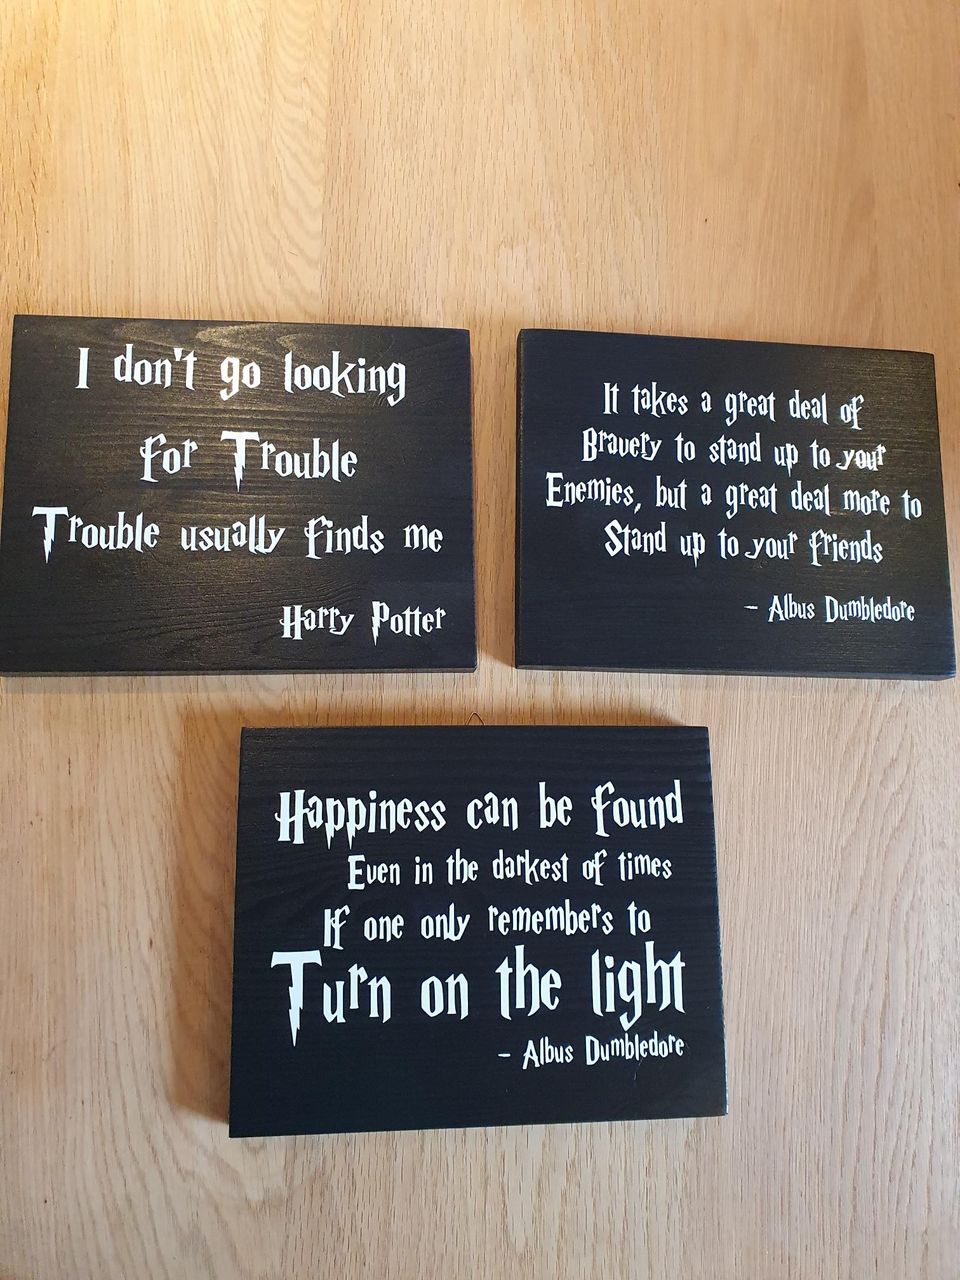 I don't go looking
for Trouble
Trouble usually finds me
Harry Potter
It takes a great deal of
Bravery to stand up to your
Enemies, but a great deal more to
Stand up to your friends
- Albus Dumbledore
Happiness can be found
Even in the darkest of times
If one only remembers to
Turn on the light
- Albus Dumbledore